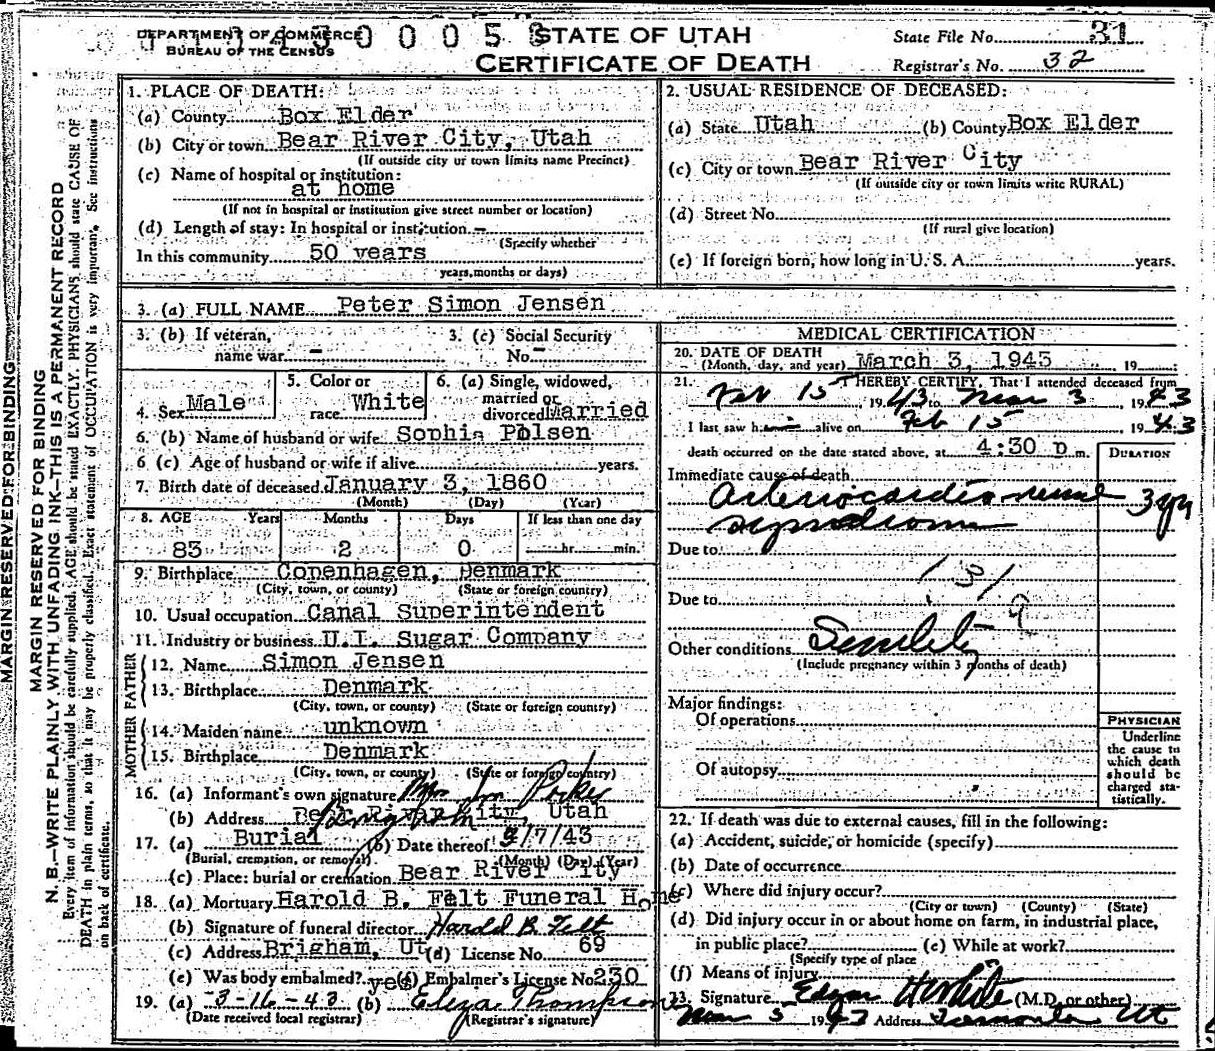 DEPARTMENT OF COMMERCE
BUREAU OF THE CENSUS
STATE OF UTAH
CERTIFICATE OF DEATH
State File No. 31
Registrar's No. 32
MARGIN RESERVED FOR BINDING
MARGIN RESERVED FOR BINDING
N. B.—WRITE PLAINLY WITH UNFADING INK—THIS IS A PERMANENT RECORD
Every item of information should be carefully supplied. AGE should be stated EXACTLY. PHYSICIANS should state CAUSE OF
DEATH in plain terms, so that it may be properly classified. Exact statement of OCCUPATION is very important. See instructions
on back of certificate.
1. PLACE OF DEATH:
(a) County Box Elder
(b) City or town Bear River City, Utah
(If outside city or town limits name Precinct)
(c) Name of hospital or institution:
at home
(If not in hospital or institution give street number or location)
(d) Length of stay: In hospital or institution —
(Specify whether
In this community 50 years
years, months or days)
2. USUAL RESIDENCE OF DECEASED:
(a) State Utah (b) County Box Elder
(c) City or town Bear River City
(If outside city or town limits write RURAL)
(d) Street No.
(If rural give location)
(e) If foreign born, how long in U. S. A. years.
3. (a) FULL NAME Peter Simon Jensen
3. (b) If veteran, name war -
3. (c) Social Security No -
4. Sex Male
5. Color or race White
6. (a) Single, widowed, married or divorced Married
6. (b) Name of husband or wife Sophia Polsen
6 (c) Age of husband or wife if alive years.
7. Birth date of deceased January 3, 1860
(Month) (Day) (Year)
8. AGE Years Months Days If less than one day
83 2 0 hr. min.
9. Birthplace Copenhagen, Denmark
(City, town, or county) (State or foreign country)
10. Usual occupation Canal Superintendent
11. Industry or business U.I. Sugar Company
FATHER
12. Name Simon Jensen
13. Birthplace Denmark
(City, town, or county) (State or foreign country)
MOTHER
14. Maiden name unknown
15. Birthplace Denmark
(City, town, or county) (State or foreign country)
16. (a) Informant's own signature Mrs
(b) Address Bear River City, Utah
Brigham
17. (a) Burial (b) Date thereof 3/7/43
(Burial, cremation, or removal) (Month) (Day) (Year)
(c) Place: burial or cremation Bear River City
18. (a) Mortuary Harold B. Felt Funeral Home
(b) Signature of funeral director Harold B Felt
(c) Address Brigham, Ut (d) License No. 69
(e) Was body embalmed? yes (f) Embalmer's License No 230
19. (a) 3-16-43 (b) Eliza Thompson
(Date received local registrar) (Registrar's signature)
MEDICAL CERTIFICATION
20. DATE OF DEATH
(Month, day, and year) March 3, 1943 19
21. I HEREBY CERTIFY, That I attended deceased from
Feb 15 1943 to Mar 3, 1943
I last saw him alive on Feb 15 1943
death occurred on the date stated above, at 4:30 p m.
DURATION
Immediate cause of death
Arteriocardio renal 3 yr
syndrome
Due to
Due to
Other conditions Senility
(Include pregnancy within 3 months of death)
Major findings:
Of operations
Of autopsy
PHYSICIAN
Underline
the cause to
which death
should be
charged sta-
tistically.
22. If death was due to external causes, fill in the following:
(a) Accident, suicide, or homicide (specify)
(b) Date of occurrence
(c) Where did injury occur?
(City or town) (County) (State)
(d) Did injury occur in or about home on farm, in industrial place,
in public place? (e) While at work?
(Specify type of place
(f) Means of injury
23. Signature Edgar White (M.D. or other)
Mar 5 1943 Address Tremonton Ut